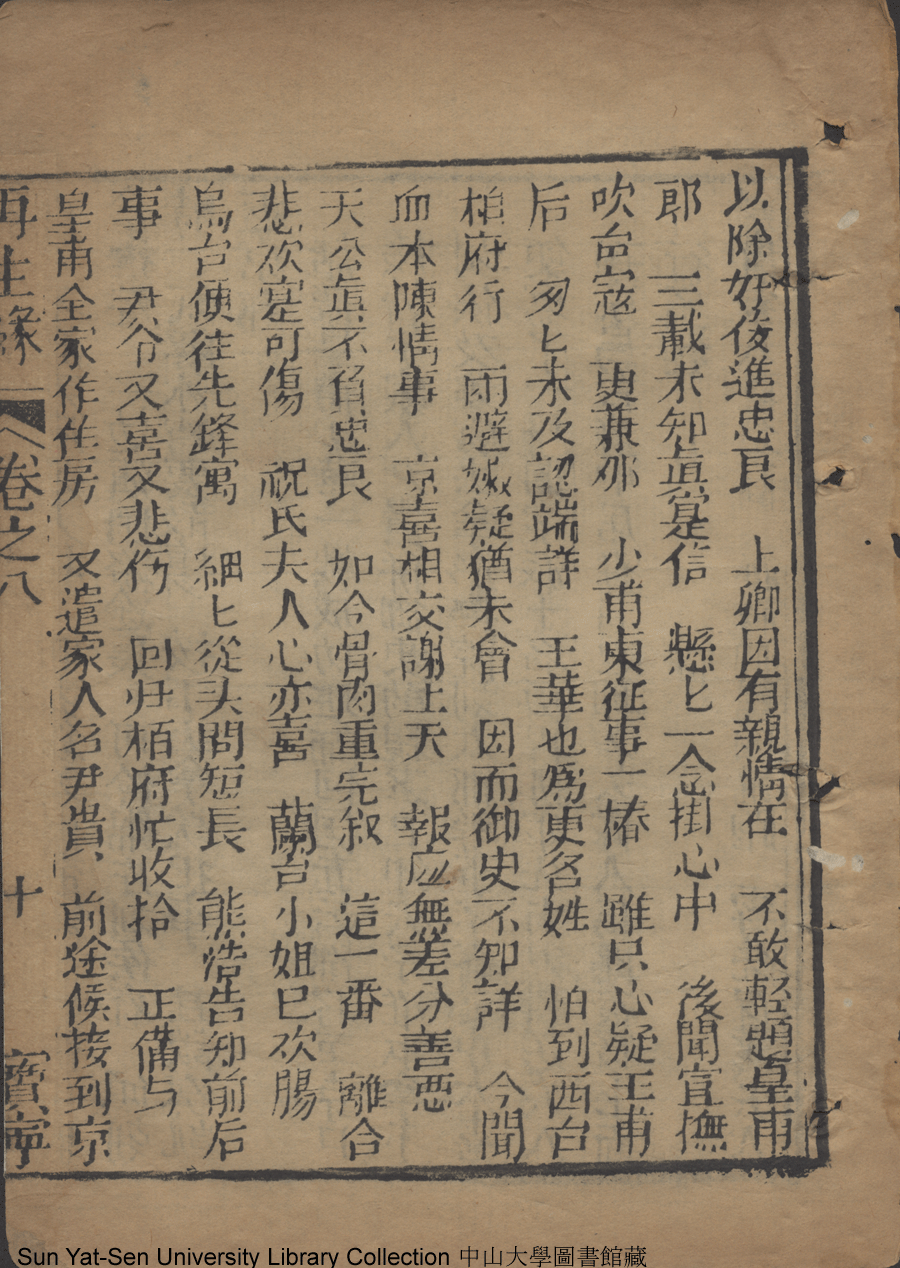 以除奸佞進忠良　上卿因有親情在　不敢輕題皇甫
郎　三載未知真寔信　懸匕一念掛心中　後聞宣撫
吹台寇　更兼那　少甫東征事一樁　雖只心疑王甫
后　匆匕未及認端詳　王華也為更名姓　怕到西台
柏府行　兩避嫌疑猶未會　因而御史不知詳　今聞
血本陳情事　京喜相交謝上天　報应無差分善惡
天公真不負忠良　如今骨肉重完叙　這一番　離合
悲欢寔可傷　祝氏夫人心亦喜　蘭台小姐已欢腸
烏台便往先鋒寓　細匕從头問短長　熊浩告知前后
事　尹爷又喜又悲伤　回归栢府忙收拾　正備与
皇甫全家作住房　又遣家人名尹貴　前途候接到京
再生緣　卷之八　十　寶寧
Sun Yat-Sen University Library Collection 中山大學圖書館藏